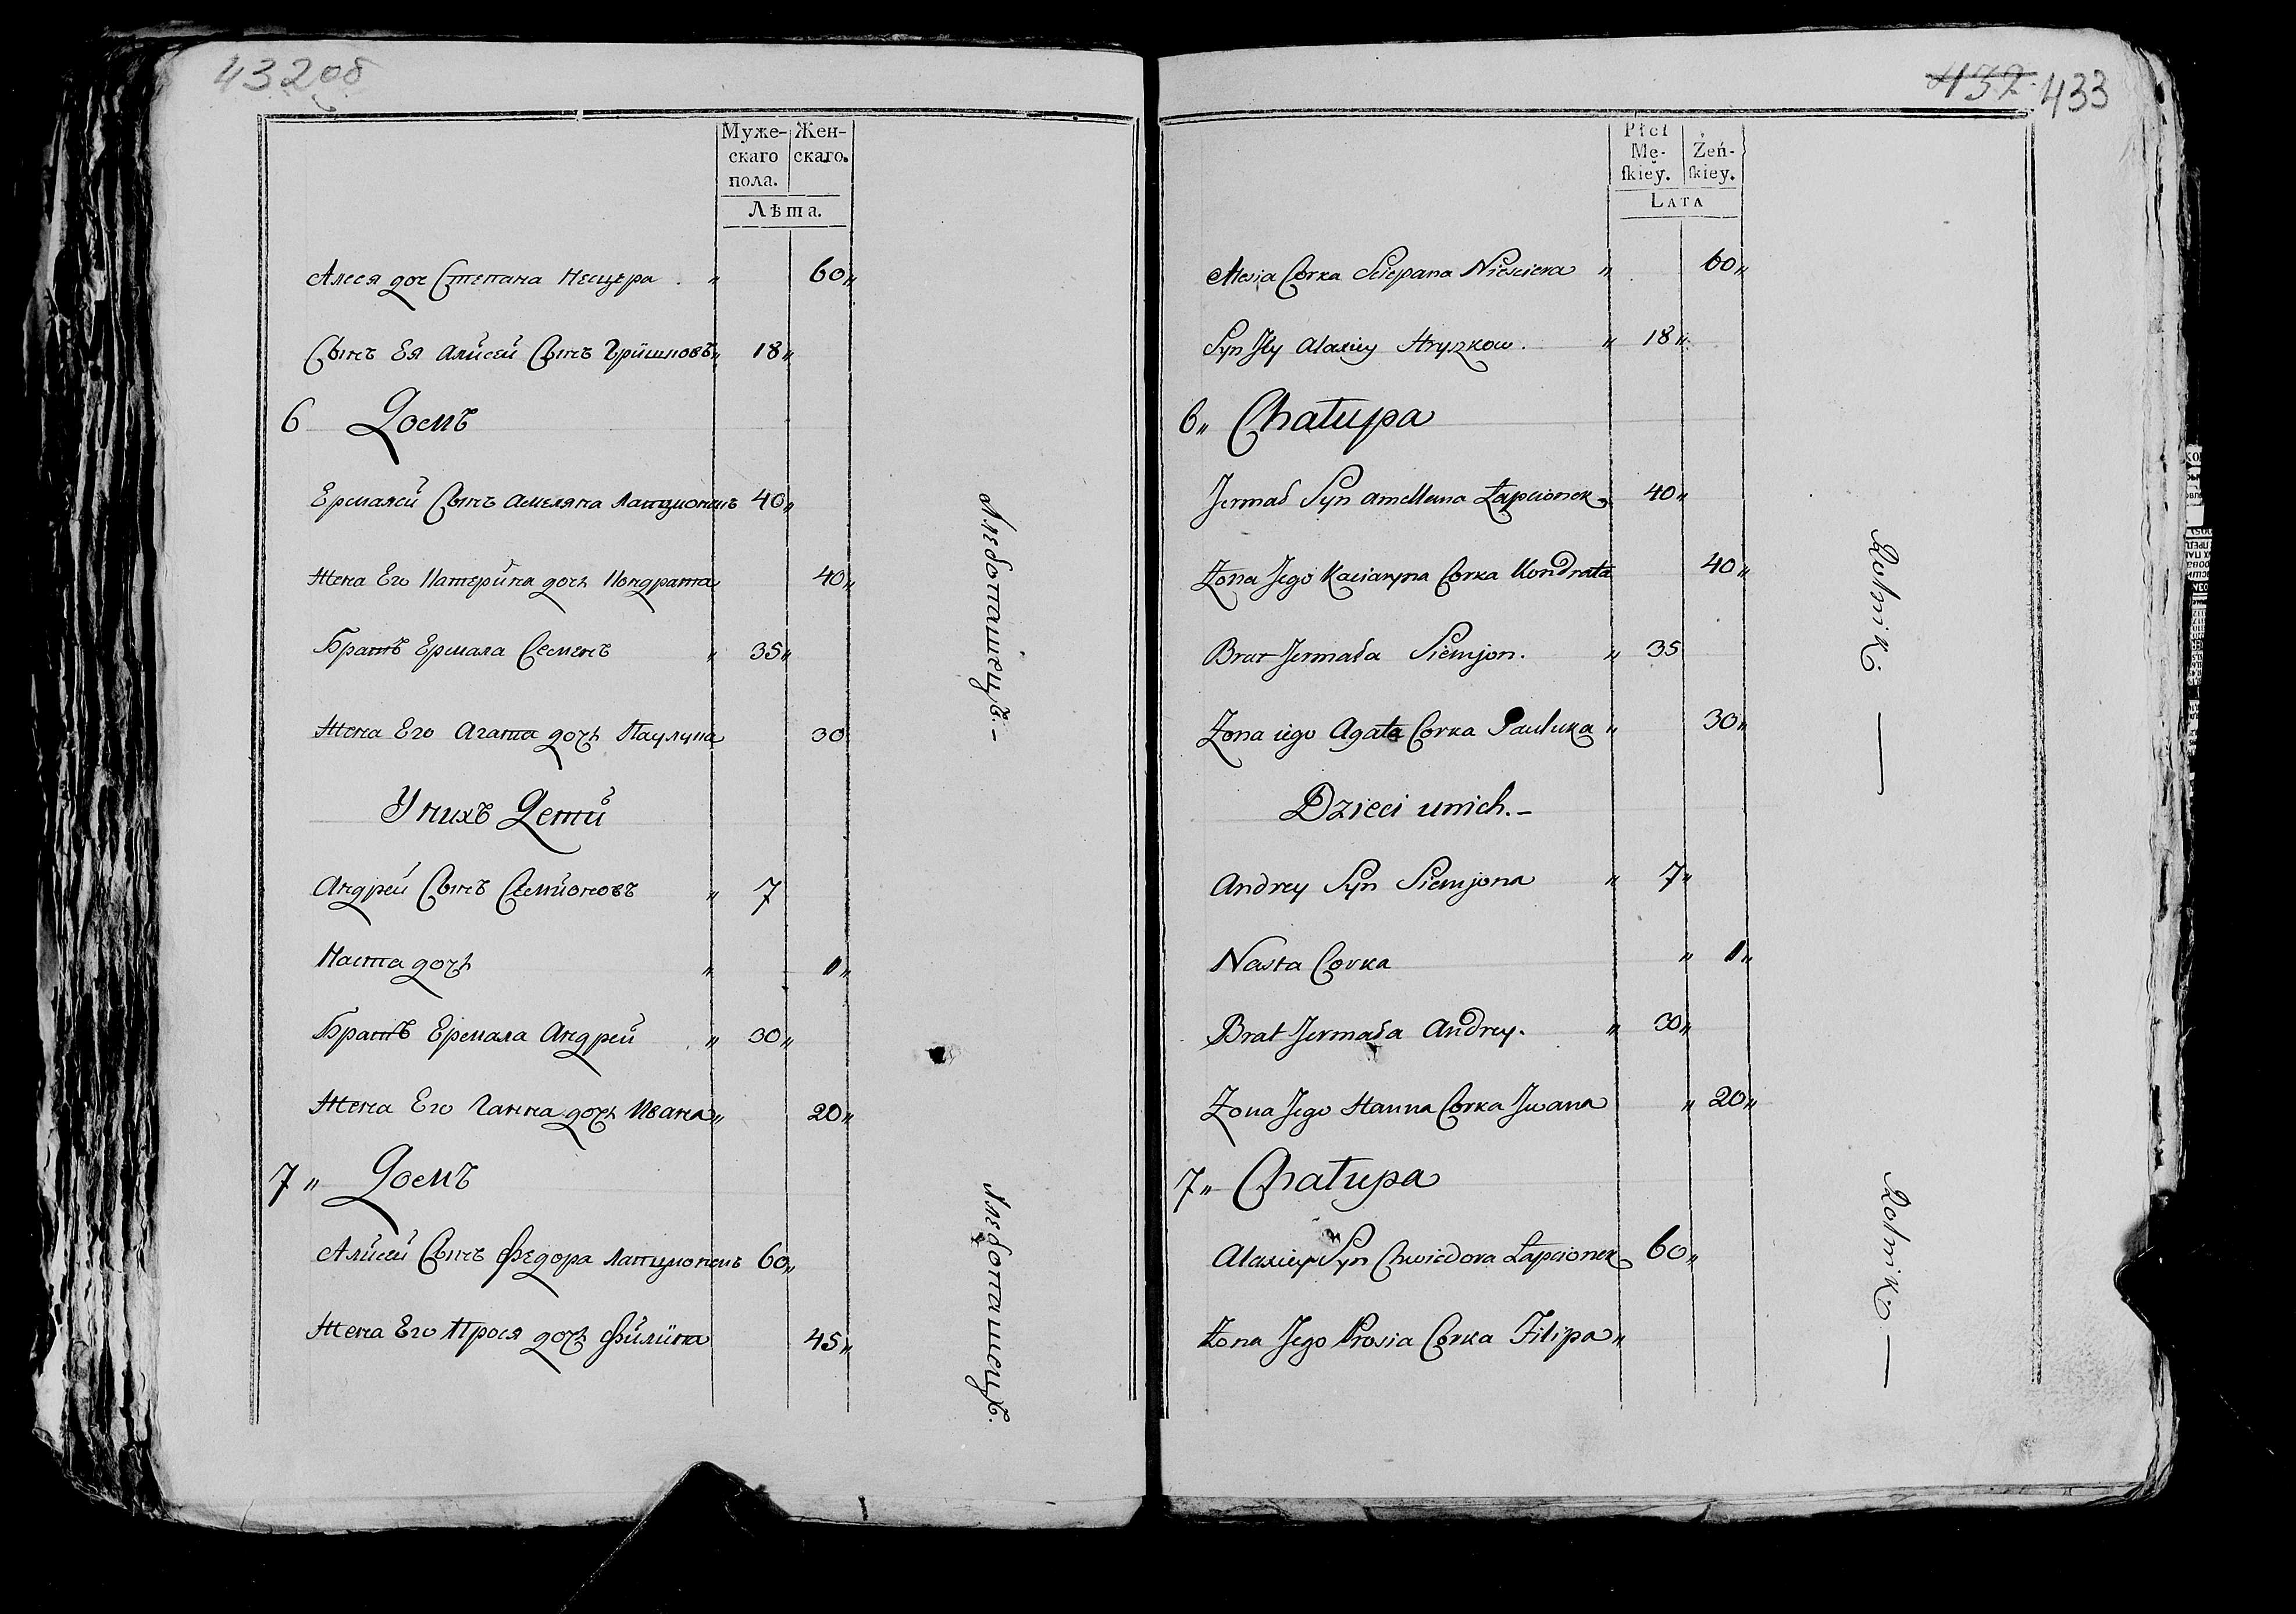 432об
Муже- Жен-
скаго скаго.
пола.
Лѣта.
Алеся доч Степана Несцера „ 60„
Сынъ Ея Алисей Сынъ Гришковъ„ 18„
6 Домъ
Ермалей Сынъ Амеляна Лапционекъ 40„
Жена Его Катерина дочь Кондрата 40„
Братъ Ермала Семенъ „ 35„
Жена Его Агата дочь Паулука 30
У нихъ Дети
Андрей Сынъ Семионовъ „ 7
Наста дочь „ 1„
Братъ Ермала Андрей „ 30„
Жена Его Ганна дочь Ивана„ 20„
7„ Домъ
Алисей Сынъ Федора Лапционекъ 60„
Жена Его Прося дочь Филипа 45„
Хлебопашецъ.–
Хлебопашецъ.
432 433
Płci
Mę- Żeń-
ſkiey. ſkiey.
LATA
Alesia Corka Sciepana Niesciera „ 60„
Syn Jey Alaxiey Hryszkow. „ 18„
6„ Chatupa
Jermał Syn Amellana Łapcionek 40„
Zona Jego Kaciaryna Corka Kondrata 40„
Brat Jermała Siemjon. „ 35
Zona iego Agata Corka Pauluka „ 30„
Dzieci unich.–
Andrey Syn Siemjona „ 7„
Nasta Corka „ 1„
Brat Jermała Andrey. „ 30„
Zona Jego Hanna Corka Jwana „ 20„
7„ Chatupa
Alaxiey Syn Chwiedora Łapcionek 60„
Zona Jego Prosia Corka Filipa„
Rolnik. —
Rolnik. —